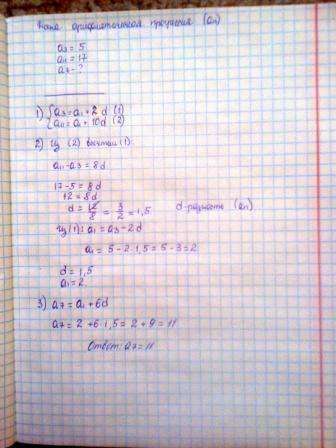 Дана арифметическая прогрессия (an)
a3 = 5
a11 = 17
a7 - ?
1) { a3 = a1 + 2d (1)
a11 = a1 + 10d (2)
2) Из (2) вычтем (1):
a11 - a3 = 8d
17 - 5 = 8d
12 = 8d
d = 12/8 = 3/2 = 1,5 d - разность (an)
Из (1): a1 = a3 - 2d
a1 = 5 - 2·1,5 = 5 - 3 = 2
d = 1,5
a1 = 2
3) a7 = a1 + 6d
a7 = 2 + 6·1,5 = 2 + 9 = 11
Ответ: a7 = 11